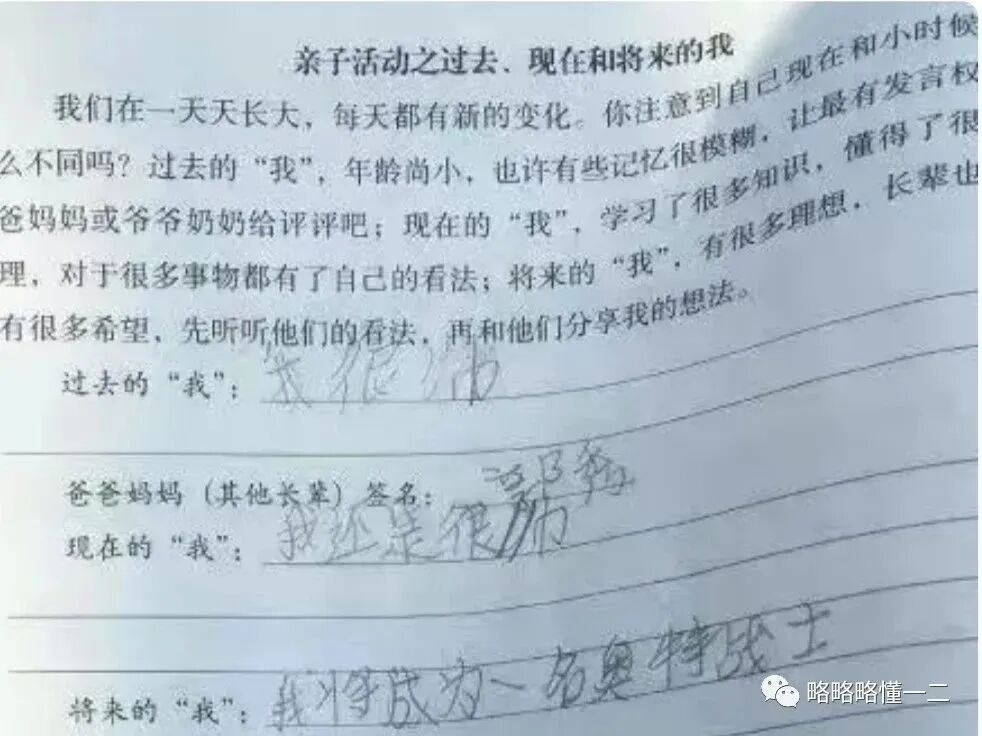 亲子活动之过去、现在和将来的我
我们在一天天长大，每天都有新的变化。你注意到自己现在和小时候
么不同吗？过去的“我”，年龄尚小，也许有些记忆很模糊，让最有发言权
爸妈妈或爷爷奶奶给评评吧；现在的“我”，学习了很多知识，懂得了很
理，对于很多事物都有了自己的看法；将来的“我”，有很多理想，长辈也
有很多希望，先听听他们的看法，再和他们分享我的想法。
过去的“我”：我很帅
爸爸妈妈（其他长辈）签名：
现在的“我”：我还是很帅
将来的“我”：我将成为一名奥特战士
略略略懂一二